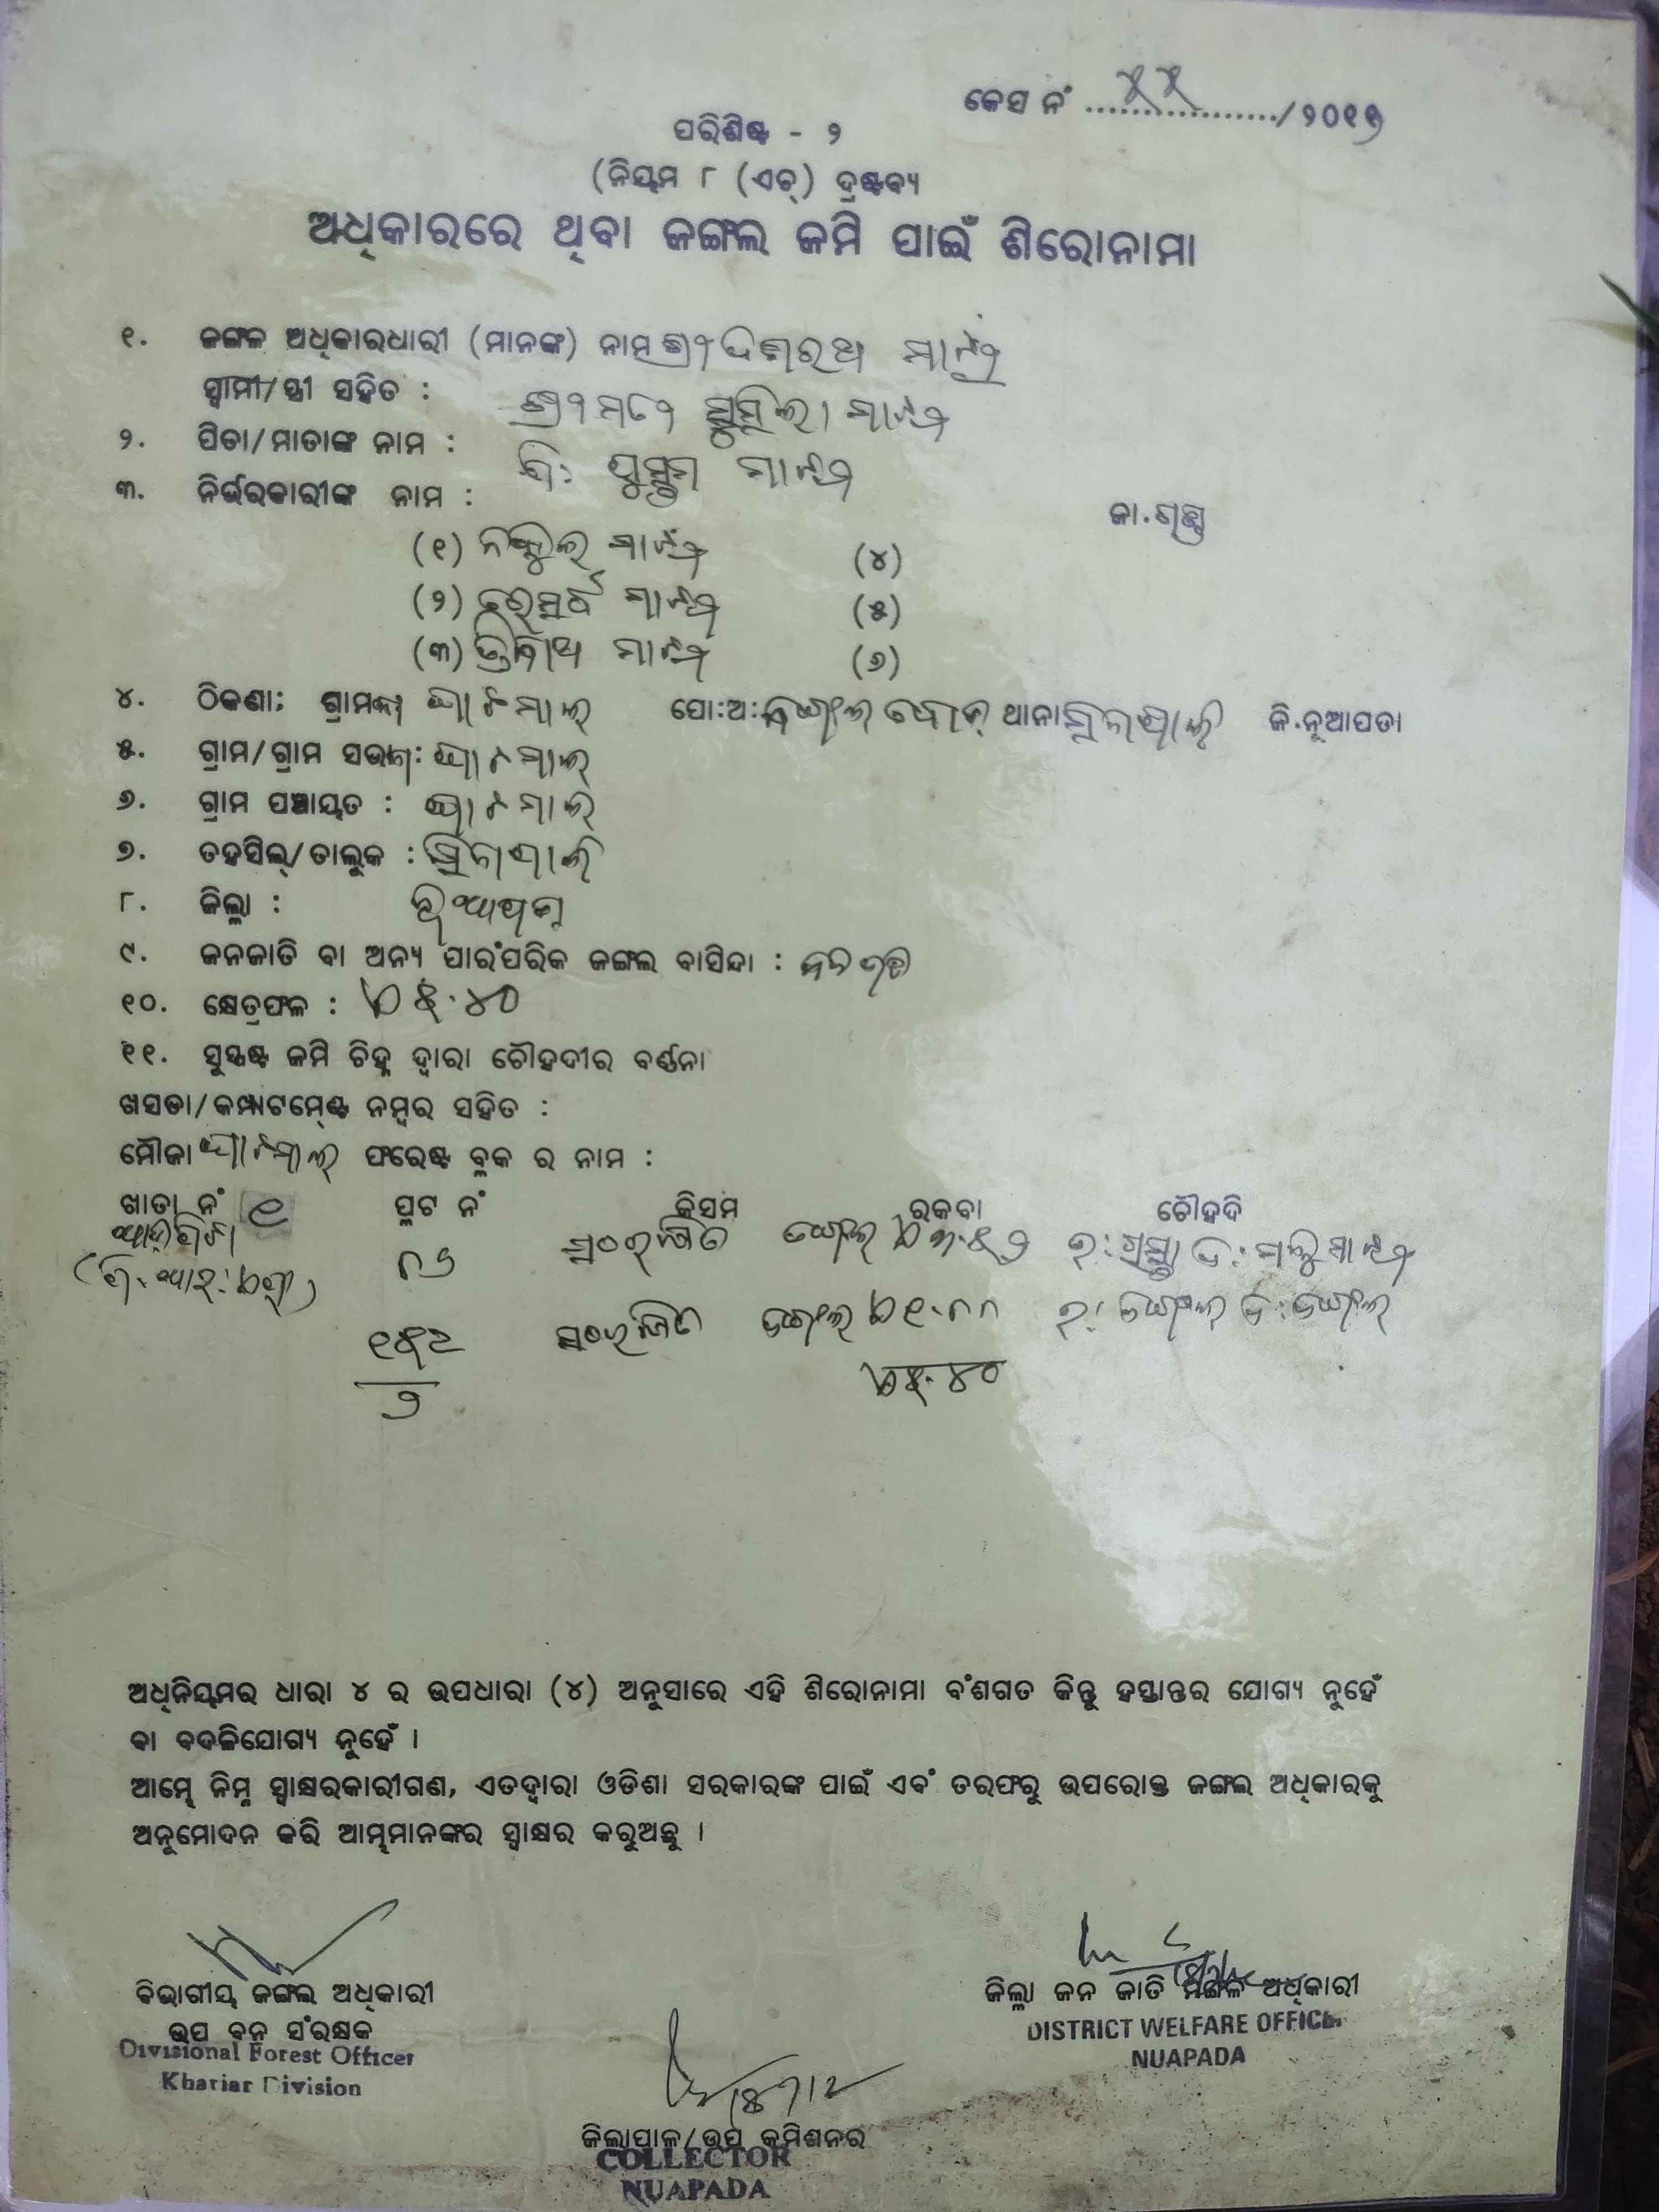 କେସ ନଂ ................./୨୦୧୬
ପରିଶିଷ୍ଟ - ୨
(ନିୟମ ୮ (ଏଚ୍) ଦ୍ରଷ୍ଟବ୍ୟ
ଅଧିକାରରେ ଥିବା ଜଙ୍ଗଲ ଜମି ପାଇଁ ଶିରୋନାମା
୧. ଜଙ୍ଗଳ ଅଧିକାରଧାରୀ (ମାନଙ୍କ) ନାମ ଶ୍ରୀ ଦଶରଥ ମାଝୀ
ସ୍ୱାମୀ/ସ୍ତ୍ରୀ ସହିତ : ଶ୍ରୀମତୀ ସୁମିଲା ମାଝୀ
୨. ପିତା/ମାତାଙ୍କ ନାମ : ପି: ସୁସ୍ତମ ମାଝୀ
୩. ନିର୍ଭରକାରୀଙ୍କ ନାମ :
ଜା.ଗଣ୍ଡ
(୧) ନକୁଲ ମାଝୀ (୪)
(୨) ମାଝୀ (୫)
(୩) ତ୍ରିନାଥ ମାଝୀ (୬)
୪. ଠିକଣା: ଗ୍ରାମ ଘାଟମାଲ୍ ପୋ:ଅ: ଥାନା ସିନାପାଲି ଜି.ନୂଆପଡା
୫. ଗ୍ରାମ/ଗ୍ରାମ ସଭା : ଘାଟମାଲ୍
୬. ଗ୍ରାମ ପଞ୍ଚାୟତ : ଘାଟମାଲ୍
୭. ତହସିଲ୍/ତାଲୁକ : ସିନାପାଲି
୮. ଜିଲ୍ଲା : ନୂଆପଡା
୯. ଜନଜାତି ବା ଅନ୍ୟ ପାରଂପରିକ ଜଙ୍ଗଲ ବାସିନ୍ଦା : ଜନଜାତି
୧୦. କ୍ଷେତ୍ରଫଳ : ୫.୪୦
୧୧. ସୁସ୍ପଷ୍ଟ ଜମି ଚିହ୍ନ ଦ୍ୱାରା ଚୌହଦୀର ବର୍ଣ୍ଣନା
ଖସଡା/କମ୍ପାଟମେଣ୍ଟ ନମ୍ବର ସହିତ :
ମୌଜା ଘାଟମାଲ୍ ଫରେଷ୍ଟ ବ୍ଲକ ର ନାମ :
ଖାତା ନଂ ପ୍ଲଟ ନଂ କିସମ ରକବା ଚୌହଦି
୮୬ ସଂରକ୍ଷିତ ଜଙ୍ଗଲ ୩.୫୨ ଉ: ରାସ୍ତା ଦ: ମାଝୀ
ସଂରକ୍ଷିତ ଜଙ୍ଗଲ ୧.୮୮ ଉ: ଜଙ୍ଗଲ ଦ: ଜଙ୍ଗଲ
୫.୪୦
ଅଧିନିୟମର ଧାରା ୪ ର ଉପଧାରା (୪) ଅନୁସାରେ ଏହି ଶିରୋନାମା ବଂଶଗତ କିନ୍ତୁ ହସ୍ତାନ୍ତର ଯୋଗ୍ୟ ନୁହେଁ
ବା ବଦଳିଯୋଗ୍ୟ ନୁହେଁ ।
ଆମ୍ଭେ ନିମ୍ନ ସ୍ୱାକ୍ଷରକାରୀଗଣ, ଏତଦ୍ୱାରା ଓଡିଶା ସରକାରଙ୍କ ପାଇଁ ଏବଂ ତରଫରୁ ଉପରୋକ୍ତ ଜଙ୍ଗଲ ଅଧିକାରକୁ
ଅନୁମୋଦନ କରି ଆମ୍ଭମାନଙ୍କର ସ୍ୱାକ୍ଷର କରୁଅଛୁ ।
ବିଭାଗୀୟ ଜଙ୍ଗଲ ଅଧିକାରୀ
ଉପ ବନ ସଂରକ୍ଷକ
Divisional Forest Officer
Khariar Division
ଜିଲ୍ଲା ଜନ ଜାତି ମଙ୍ଗଳ ଅଧିକାରୀ
DISTRICT WELFARE OFFICER
NUAPADA
ଜିଲ୍ଲାପାଳ/ଉପ କମିଶନର
COLLECTOR
NUAPADA